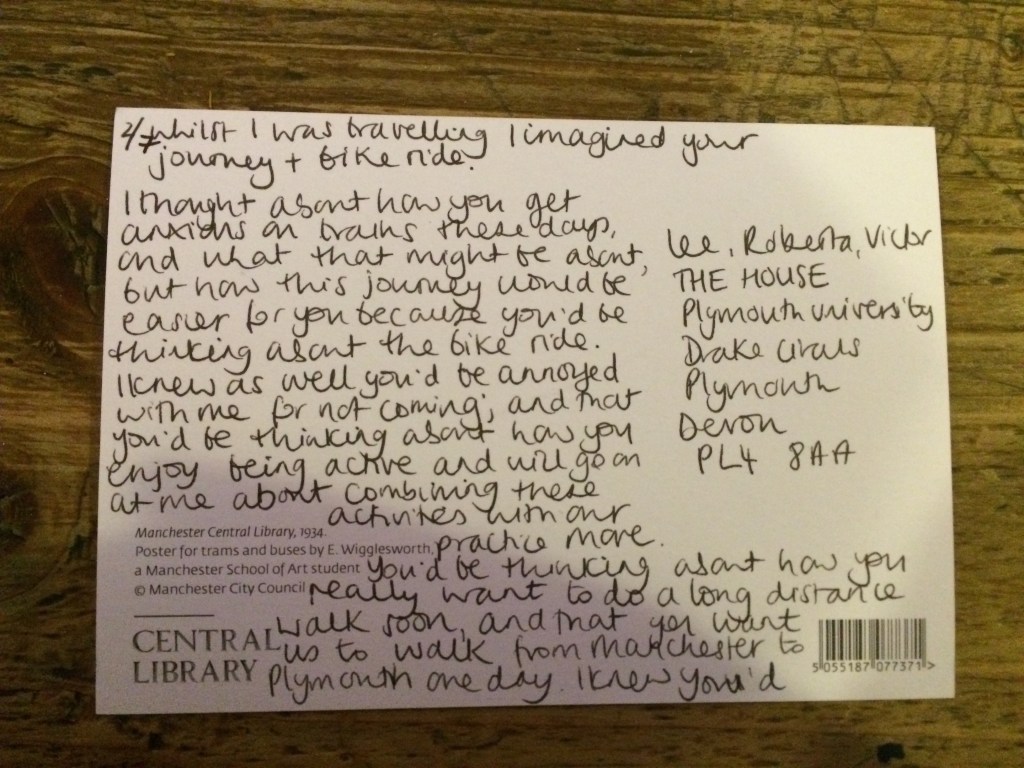 2/7 whilst I was travelling I imagined your
journey + bike ride.
I thought about how you get
anxious on trains these days,
and what that might be about,
but how this journey would be
easier for you because you'd be
thinking about the bike ride.
I knew as well you'd be annoyed
with me for not coming, and that
you'd be thinking about how you
enjoy being active and will go on
at me about combining these
activites with our
practice more.
you'd be thinking about how you
really want to do a long distance
walk soon, and that you want
us to walk from Manchester to
Plymouth one day. I knew you'd
Lee, Roberta, Victor
THE HOUSE
Plymouth university
Drake Circus
Plymouth
Devon
PL4 8AA
Manchester Central Library, 1934.
Poster for trams and buses by E. Wigglesworth,
a Manchester School of Art student
© Manchester City Council
CENTRAL
LIBRARY
5 055187 077371 >